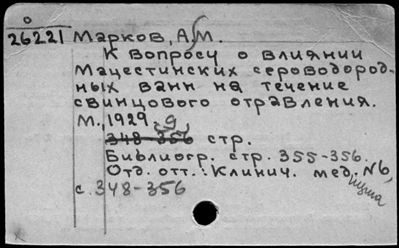 26221 Марков, А. М.
К вопросу о влиянии
Мацестинских сероводород-
ных ванн на течение
свинцового отравления.
М., 1929. 9
348-356 стр.
Библиогр. стр. 355-356.
Отд. отт.: Клинич. мед. №6,
с. 348-356